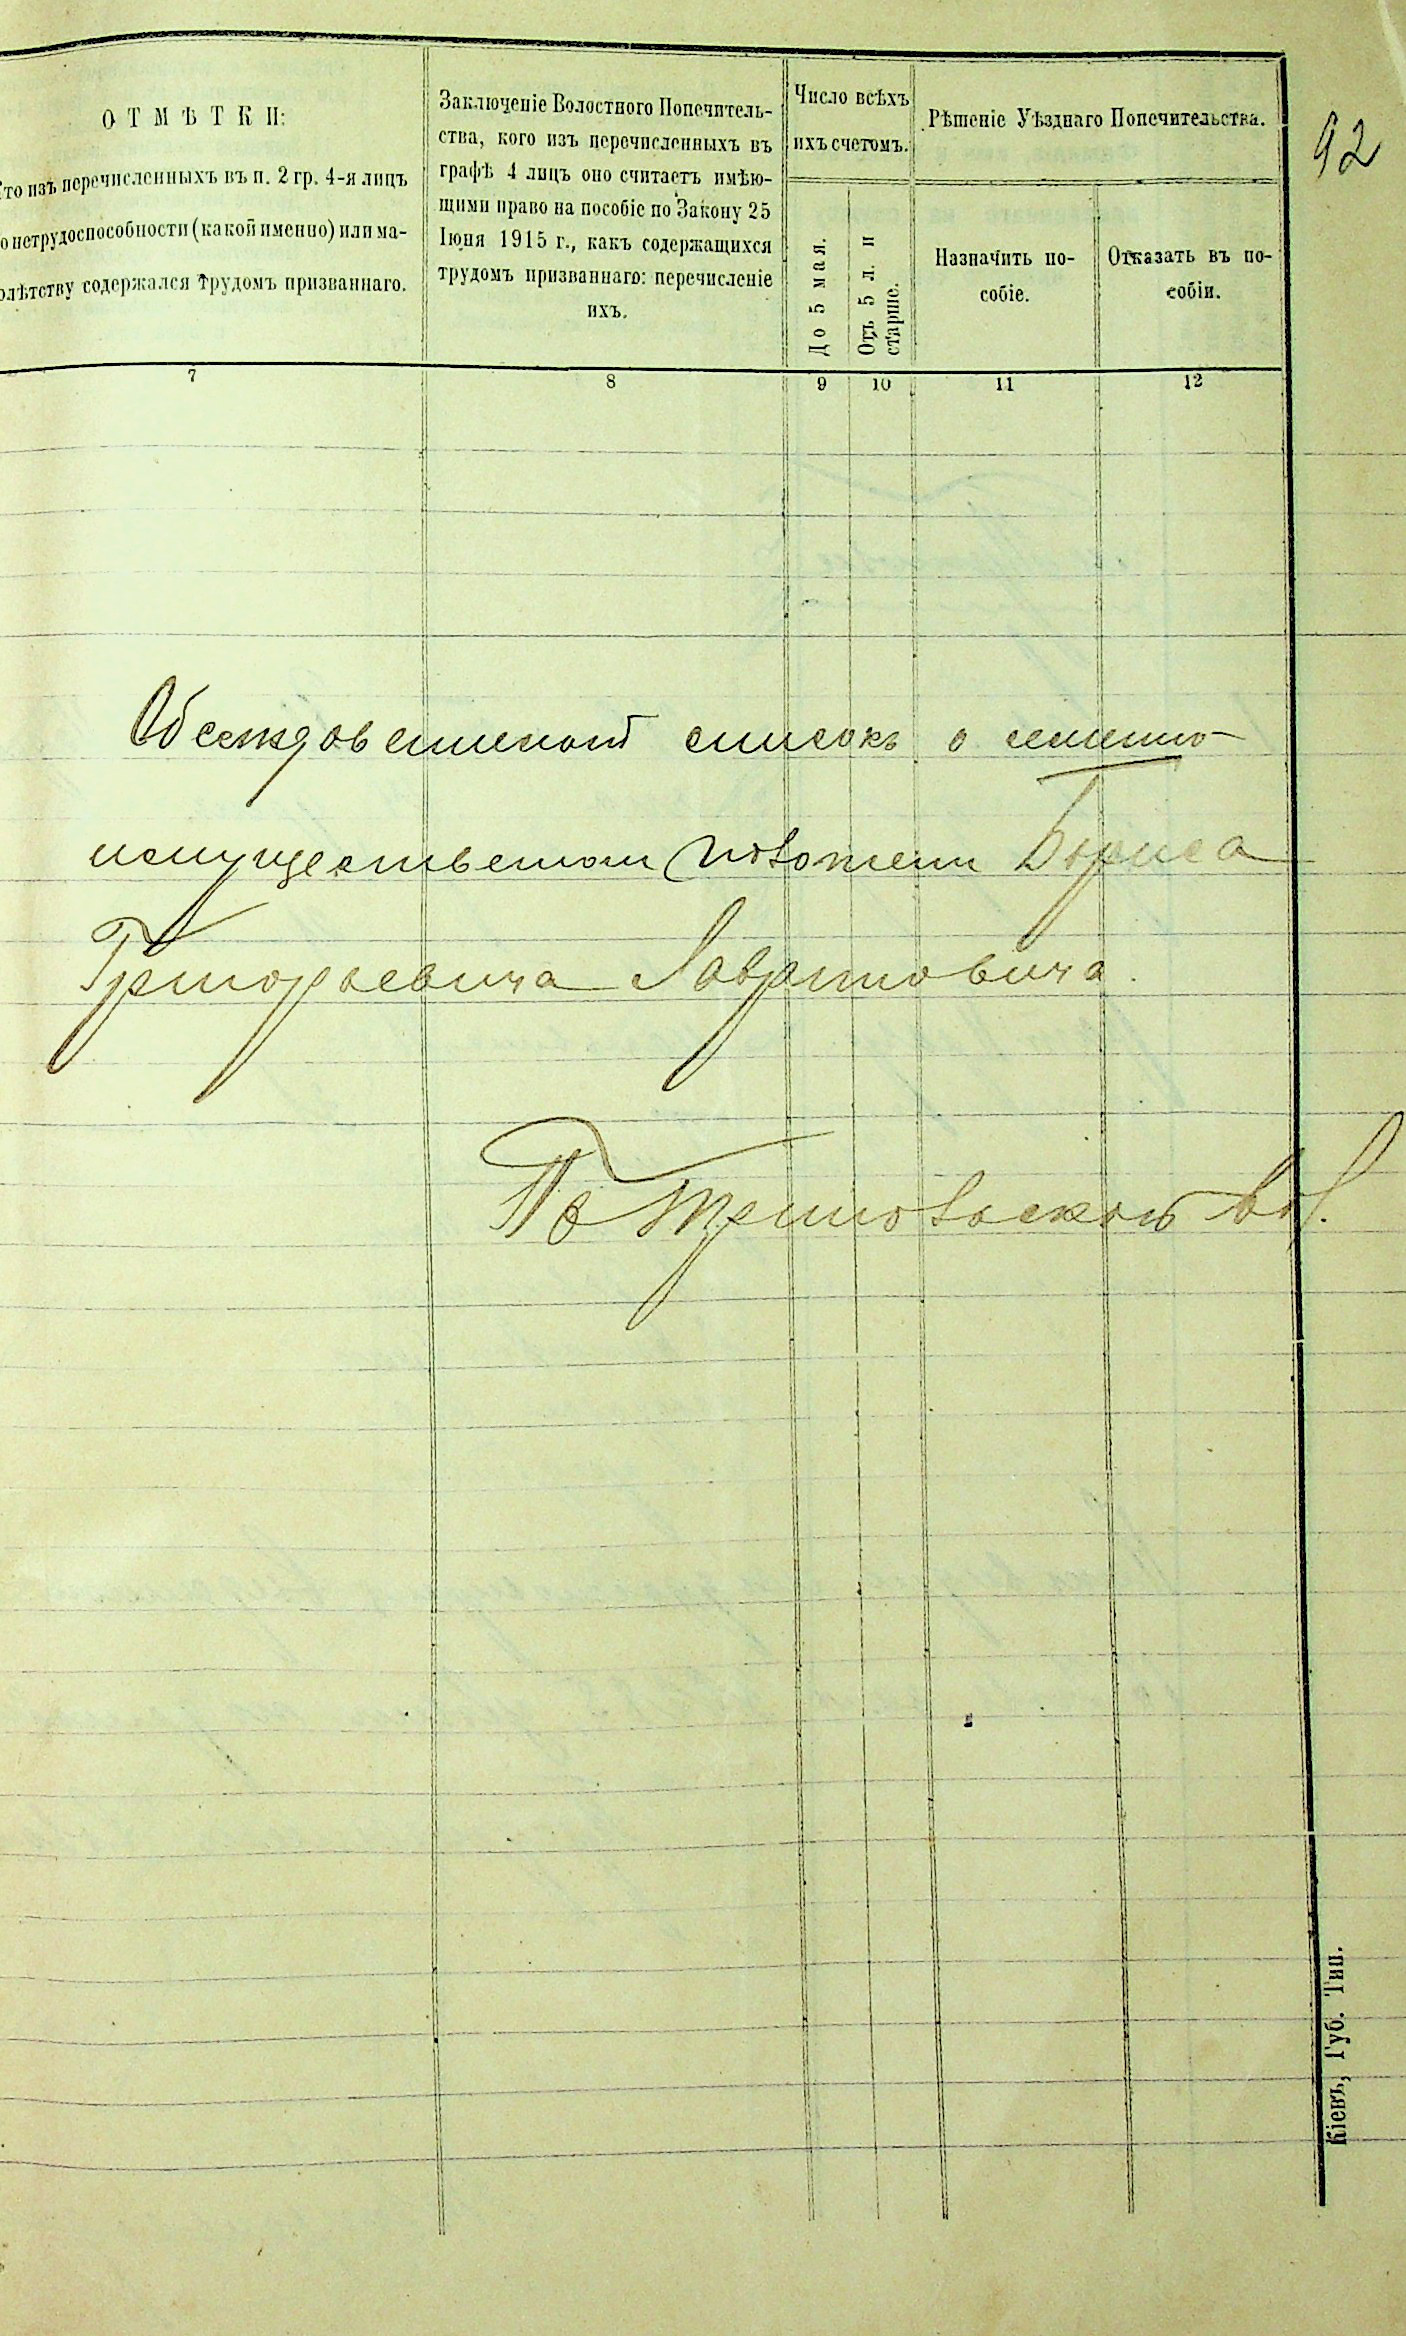 92
ОТМѢТКИ:
то изъ перечисленныхъ въ п. 2 гр. 4-я лицъ
о нетрудоспособности (какой именно) или ма-
олѣтству содержался трудомъ призваннаго.
Заключеніе Волостного Попечитель-
ства, кого изъ перечисленныхъ въ
графѣ 4 лицъ оно считаетъ имѣю-
щими право на пособіе по Закону 25
Іюня 1915 г., какъ содержащихся
трудомъ призваннаго: перечисленіе
ихъ.
Число всѣхъ
ихъ счетомъ.
До 5 мая.
Отъ 5 л. и
старше.
Рѣшеніе Уѣзднаго Попечительства.
Назначить по-
собіе.
Отказать въ по-
собіи.
7 8 9 10 11 12
список о семейно
имущественом положени Бориса
Григорьевича Лавриновича.
По вол.
Кіевъ, Губ. Тип.